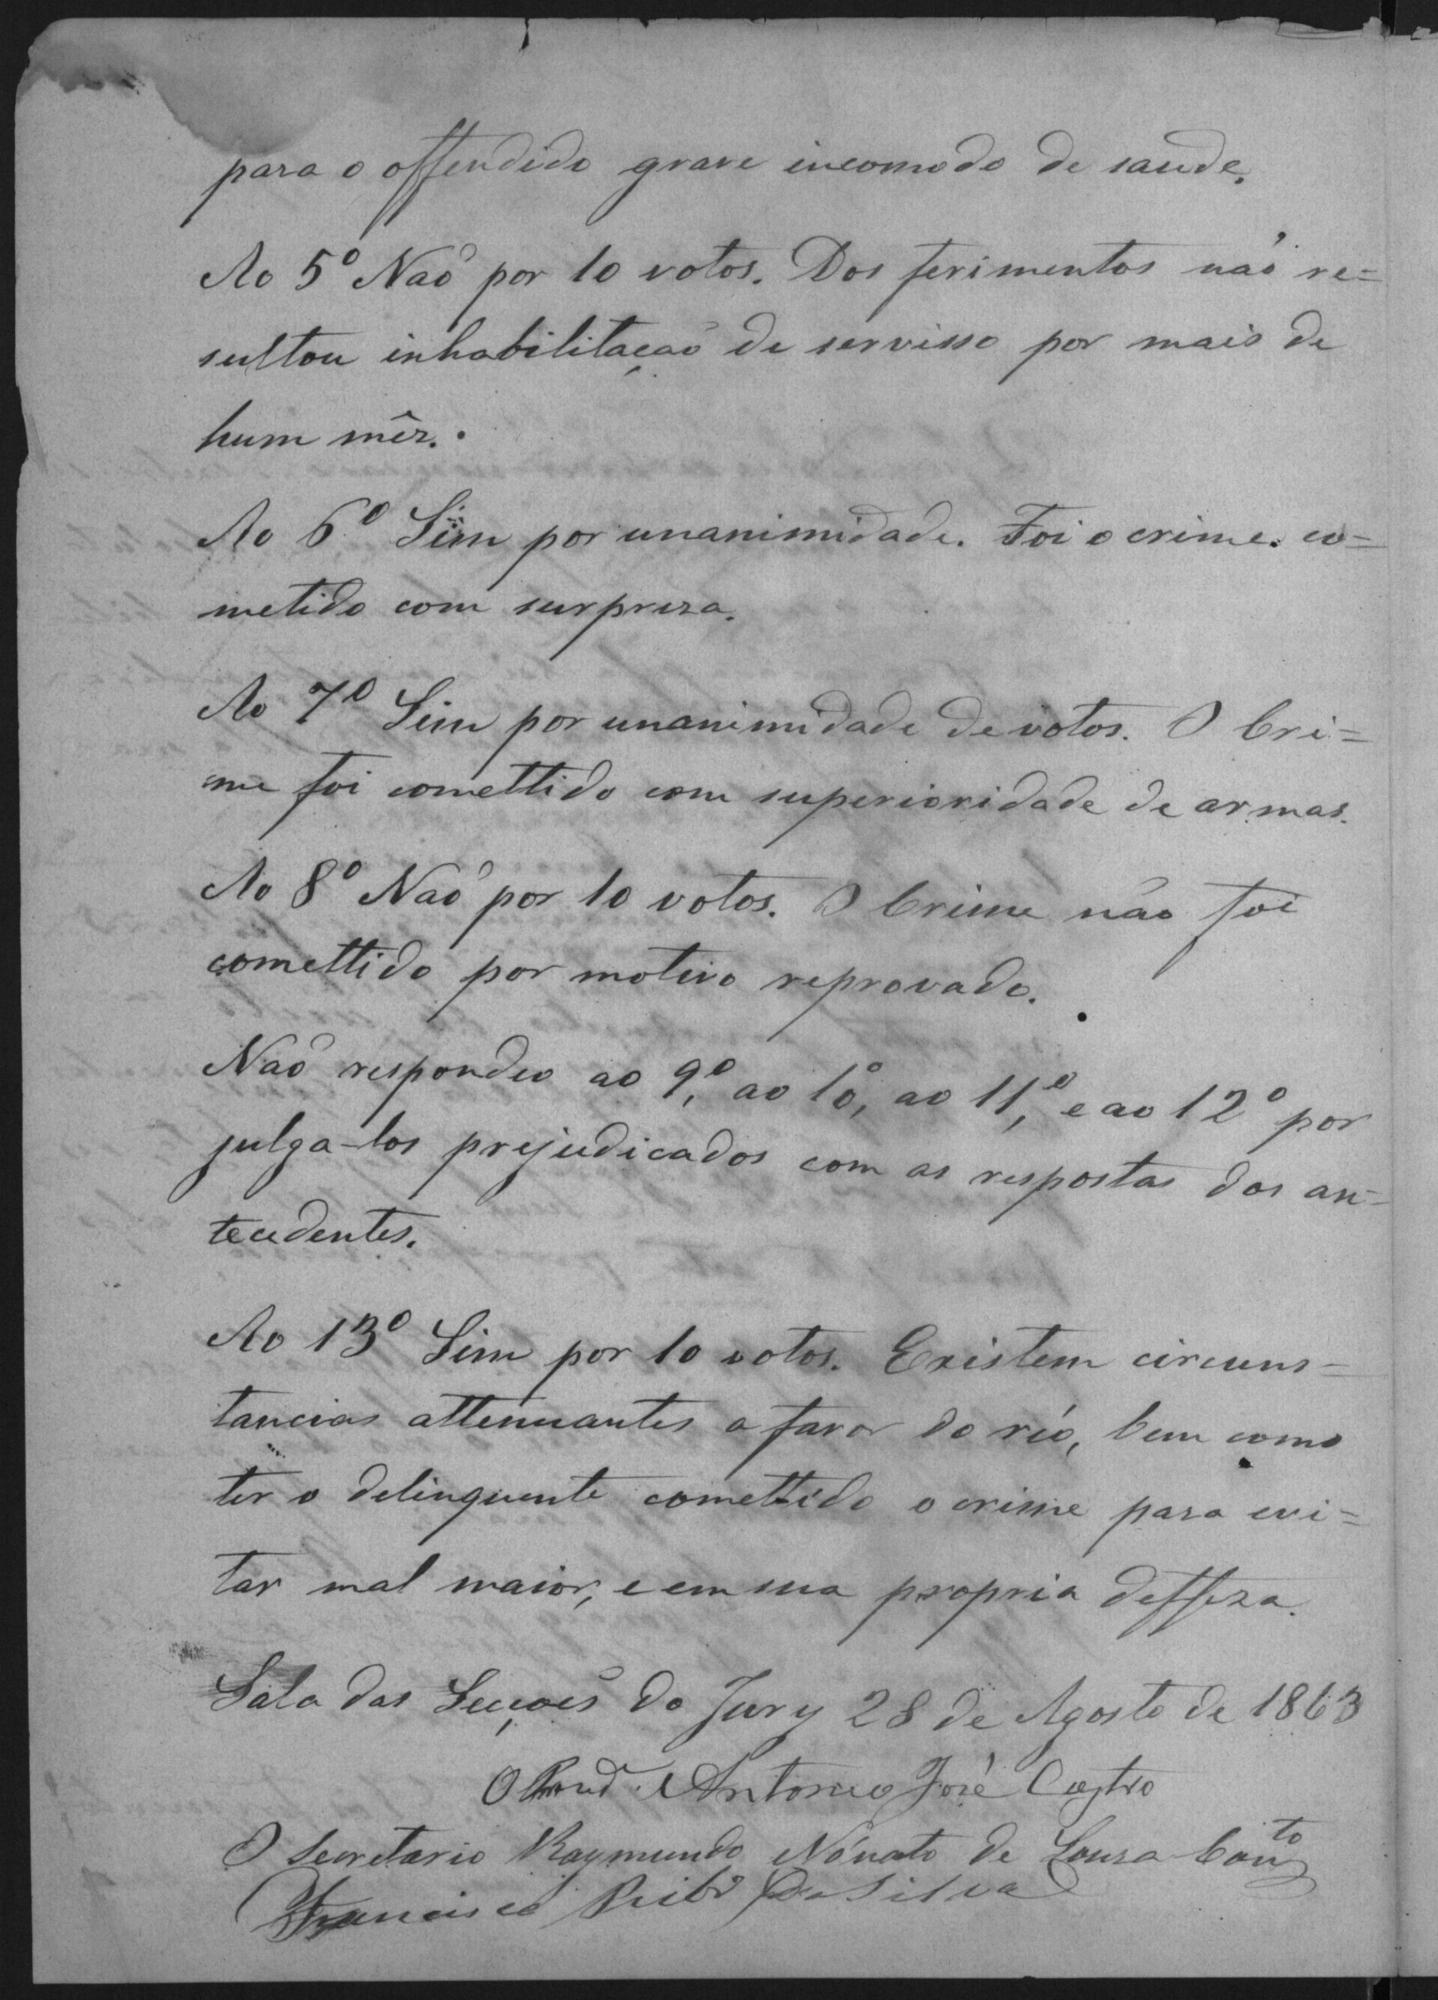 para o offendido grave incomodo de saude.
Ao 5º Naõ por 10 votos. Dos ferimentos naõ re=
sultou inhabilitaçaõ de servisso por mais de
hum mêz.
Ao 6º Sim por unanimidade. Foi o crime co=
metido com surpreza.
Ao 7º Sim por unanimidade de votos. O Cri=
me foi comettido com superioridade de armas.
Ao 8º Naõ por 10 votos. O Crime não foi
comettido por motivo reprovado.
Naõ respondeo ao 9º, ao 10º, ao 11º, e ao 12º por
julga-los prejudicados com as respostas dos an=
tecedentes.
Ao 13º Sim por 10 votos. Existem circuns=
tancias attenuantes a favor do réo, bem como
ter o delinquente comettido o crime para evi=
tar mal maior, e em sua propria deffeza.
Sala das Secçoẽs do Jury 28 de Agosto de 1863
O Antonio José Castro
O Secretario Raymundo Nónato de Souza
Francisco Ribº Da Silva